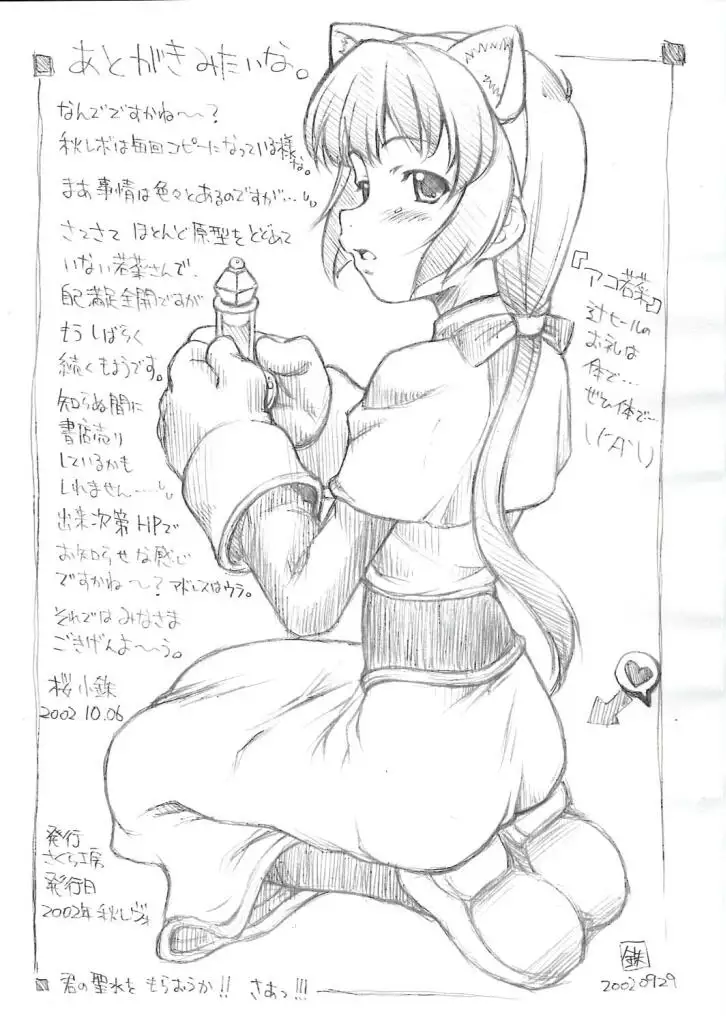 あとがきみたいな。
なんでですかね〜〜？
秋レボは毎回コピーになっている様な。
まあ事情は色々とあるのですが…
さてさて ほとんど原型をとどめて
いない若葉さんで、
自己満足全開ですが
もうしばらく
続くもようです。
知らぬ間に
書店売り
しているかも
しれません……
出来次第HPで
お知らせな感じ
ですかね〜〜？アドレスはウラ。
それではみなさま
ごきげんよ〜〜う。
桜小銖
2002.10.06
発行
さくら工房
発行日
2002年 秋レヴォ
『アコ若葉』
ヒールの
お礼は
体で…
ぜひ体で…
君の聖水を もらおうか!! さあっ!!!
銖
20020929